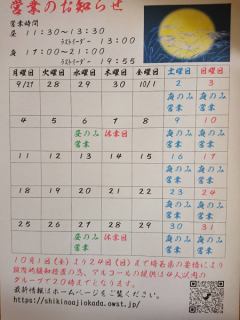 営業のお知らせ
営業時間
昼 11:30~13:30
ラストオーダー 13:00
夜 17:00~21:00
ラストオーダー 19:55
月曜日 火曜日 水曜日 木曜日 金曜日 土曜日 日曜日
9/27 28 29 30 10/1 2 3
昼のみ 昼のみ
営業 営業
4 5 6 7 8 9 10
昼のみ 休業日 昼のみ 昼のみ
営業 営業 営業
11 12 13 14 15 16 17
昼のみ 昼のみ
営業 営業
18 19 20 21 22 23 24
昼のみ 昼のみ
営業 営業
25 26 27 28 29 30 31
昼のみ 休業日
営業
10月1日(金)より24日(日)まで埼玉県の要請により
段階的緩和措置の為、アルコールの提供は4人以内の
グループで20時までとなります。
最新情報はホームページをご覧ください。
https://shikinoajiokada.owst.jp/